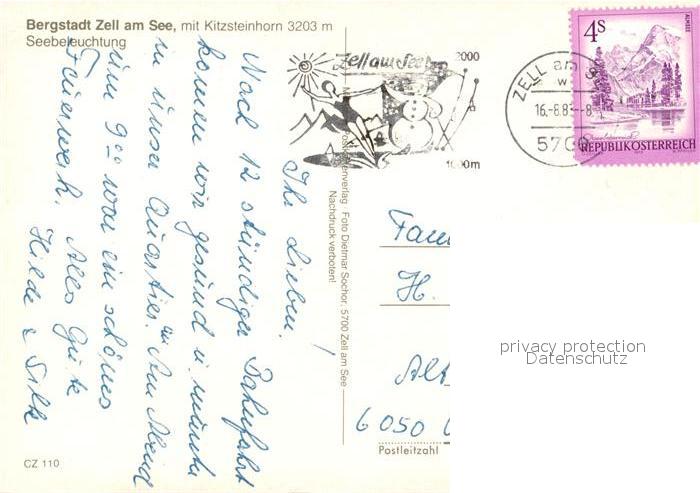 Bergstadt Zell am See, mit Kitzsteinhorn 3203 m
Seebeleuchtung
Ihr Lieben!
Nach 12 stündiger Bahnfahrt
kamen wir gesund u. munter
in unser Quartier. Am Abend
um 9 00 war ein schönes
Feuerwerk. Alles Gute
Hilde &
Zell am See
2000
1000m
ZELL am
16.-8.8
570
4S
ALMSEE
REPUBLIK ÖSTERREICH
Postkartenverlag Foto Dietmar Sochor, 5700 Zell am See
Nachdruck verboten!
Fam
H.
Alt
6050
Postleitzahl
privacy protection
Datenschutz
CZ 110